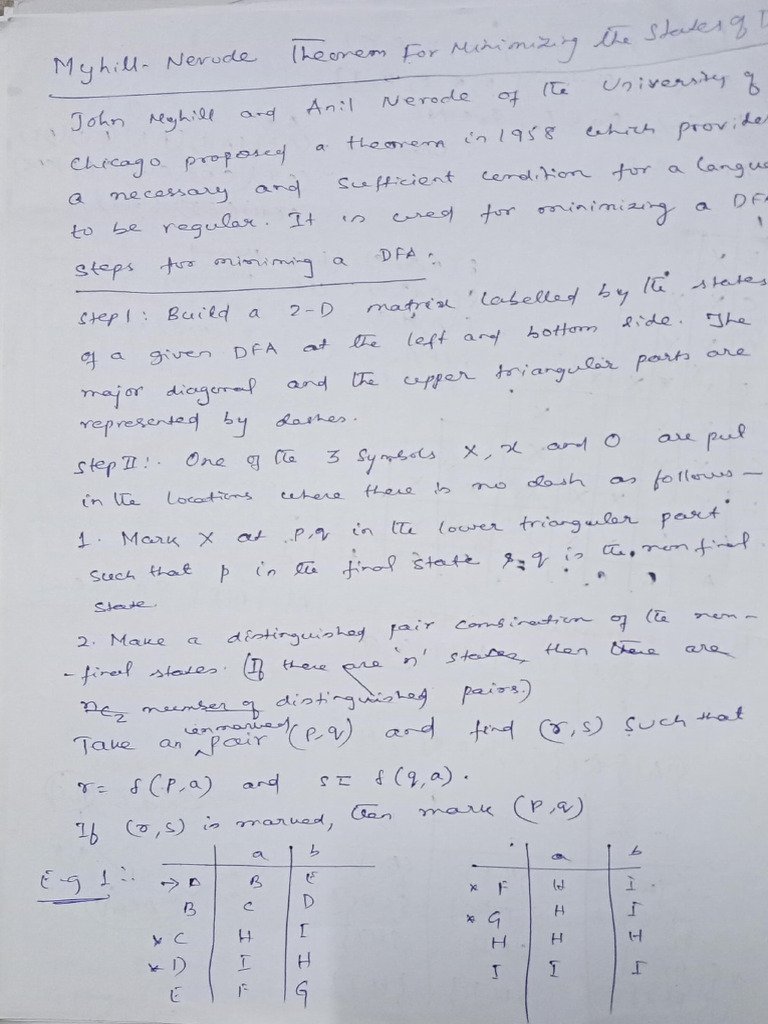 Myhill-Nerode Theorem For Minimizing the States of
John Myhill and Anil Nerode of the University of
Chicago proposed a theorem in 1958 which provide
a necessary and sufficient condition for a langua
to be regular. It is used for minimizing a DFA
Steps for miniming a DFA:
Step I: Build a 2-D matrix labelled by the states
of a given DFA at the left and bottom side. The
major diagonal and the upper triangular parts are
represented by dashes.
Step II:- One of the 3 Symbols X, x and O are put
in the locations where there is no dash as follows-
1. Mark X at P,q in the lower triangular part
such that p in the final state & q is the non final
state.
2. Make a distinguished pair combination of the non-
-final states. (If there are 'n' states, then there are
nC2 number of distinguished pairs.)
Take an unmarked pair (P,q) and find (r,s) such that
r = δ(P,a) and s = δ(q,a).
If (r,s) is marked, then mark (P,q)
E-g 1:-
a b
→ A B E
B C D
* C H I
* D I H
E F G
a b
* F H I
* G H I
H H H
I I I